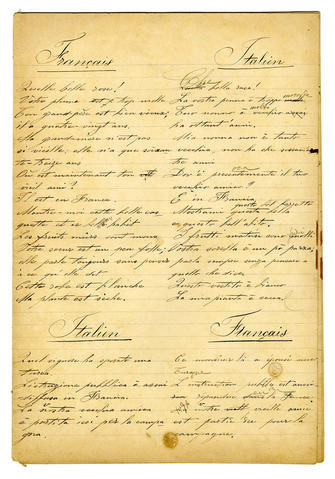 Français
Quelle belle rose!
Votre plume est trop molle
Ton grand père est bien vieux;
il a quatre-vingt ans
Ma grandmère n'est pas
si vieille, elle n'a que soixan
te-treize ans
Où est maintenant ton
vieil ami?
Il est en France.
Montre-moi cette belle cas
quette et ce bel habit
Les fruits mûrs sont
Votre soeur est un peu folle;
elle parle toujours sans penser
à ce qu'elle dit
Cette robe est blanche
Ma plante est sèche.
Italien
Che bella rosa!
La vostra penna è troppo
Tuo nonno è vecchio assai
ha ottant'anni.
Mia nonna non è tanto
vecchia, non ha che
tre anni
Dov'è presentemente il tuo
vecchio amico?
È in Francia
Mostrami questa bella
e questo bell'abito.
I frutti maturi sono
Vostra sorella è un pò pazza,
parla sempre senza pensare a
quello che dice
Questo vestito è bianco
La mia pianta è secca.
Italien
Quel signore ha sposato una
L'istruzione pubblica è assai
diffusa in Francia.
La vostra vecchia amica
è partita per la campa
gna.
Français
Ce monsieur là a épousé une
L'instruction est
répandue dans la France
vieille amie
est partie pour la
campagne.